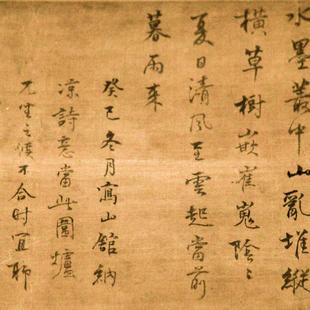 水墨叢中山亂堆縱
橫草樹嵌崔嵬陰〻
夏日清風至雲起當前
暮雨来
癸巳冬月寫山館納
凉詩意當此圍爐
兀坐之候不合时宜聊